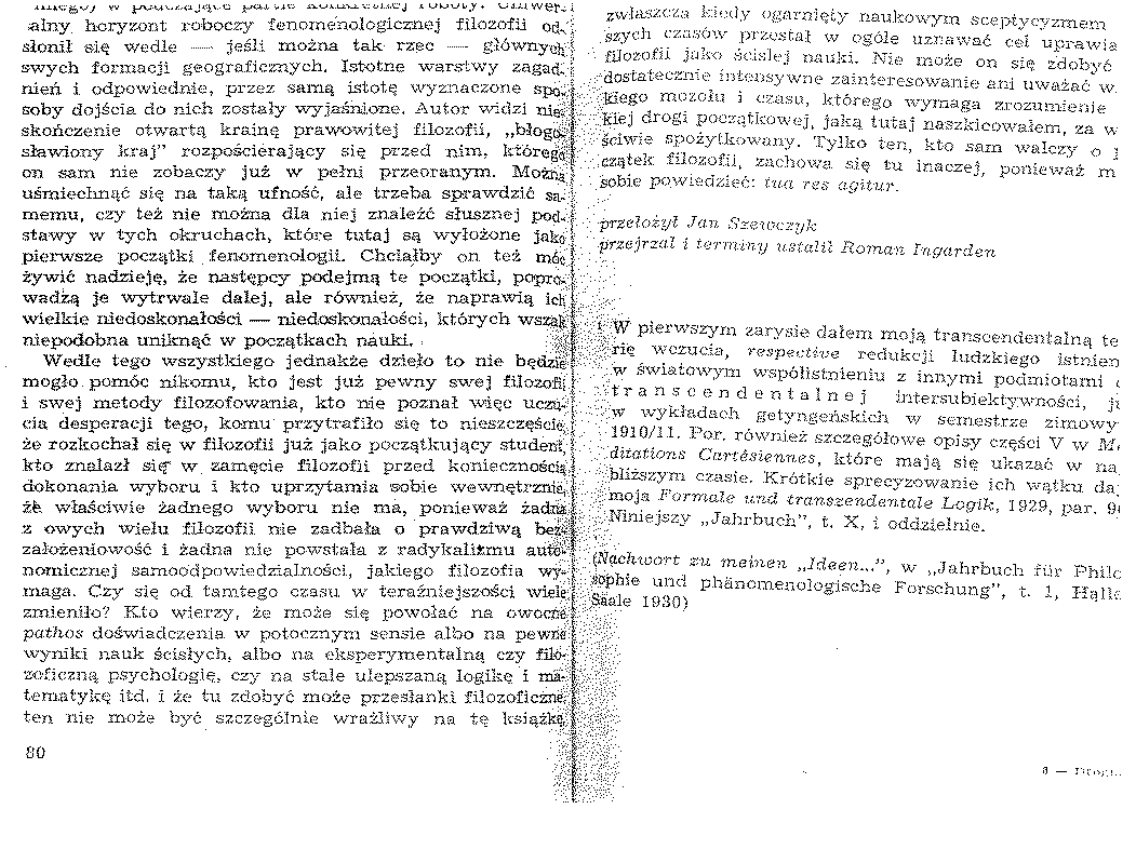 alny horyzont roboczy fenomenologicznej filozofii od-
słonił się wedle — jeśli można tak rzec — głównych
swych formacji geograficznych. Istotne warstwy zagad-
nień i odpowiednie, przez samą istotę wyznaczone spo-
soby dojścia do nich zostały wyjaśnione. Autor widzi nie-
skończenie otwartą krainę prawowitej filozofii, „błogo-
sławiony kraj” rozpościerający się przed nim, którego
on sam nie zobaczy już w pełni przeoranym. Można
uśmiechnąć się na taką ufność, ale trzeba sprawdzić sa-
memu, czy też nie można dla niej znaleźć słusznej pod-
stawy w tych okruchach, które tutaj są wyłożone jako
pierwsze początki fenomenologii. Chciałby on też móc
żywić nadzieję, że następcy podejmą te początki, popro-
wadzą je wytrwale dalej, ale również, że naprawią ich
wielkie niedoskonałości — niedoskonałości, których wszak
niepodobna uniknąć w początkach nauki.
Wedle tego wszystkiego jednakże dzieło to nie będzie
mogło pomóc nikomu, kto jest już pewny swej filozofii
i swej metody filozofowania, kto nie poznał więc uczu-
cia desperacji tego, komu przytrafiło się to nieszczęście,
że rozkochał się w filozofii już jako początkujący student,
kto znalazł się w zamęcie filozofii przed koniecznością
dokonania wyboru i kto uprzytamia sobie wewnętrznie,
że właściwie żadnego wyboru nie ma, ponieważ żadna
z owych wielu filozofii nie zadbała o prawdziwą bez-
założeniowość i żadna nie powstała z radykalizmu auto-
nomicznej samoodpowiedzialności, jakiego filozofia wy-
maga. Czy się od tamtego czasu w teraźniejszości wiele
zmieniło? Kto wierzy, że może się powołać na owocne
pathos doświadczenia w potocznym sensie albo na pewne
wyniki nauk ścisłych, albo na eksperymentalną czy filo-
zoficzną psychologię, czy na stale ulepszaną logikę i ma-
tematykę itd. i że tu zdobyć może przesłanki filozoficzne,
ten nie może być szczególnie wrażliwy na tę książkę,
80
zwłaszcza kiedy ogarnięty naukowym sceptycyzmem
szych czasów przestał w ogóle uznawać cel uprawia
filozofii jako ścisłej nauki. Nie może on się zdobyć
dostatecznie intensywne zainteresowanie ani uważać w
kiego mozołu i czasu, którego wymaga zrozumienie
kiej drogi początkowej, jaką tutaj naszkicowałem, za w
ściwie spożytkowany. Tylko ten, kto sam walczy o
czątek filozofii, zachowa się tu inaczej, ponieważ m
sobie powiedzieć: tua res agitur.
przełożył Jan Szewczyk
przejrzał i terminy ustalił Roman Ingarden
W pierwszym zarysie dałem moją transcendentalną te
rię wczucia, respective redukcji ludzkiego istnien
w światowym współistnieniu z innymi podmiotami
transcendentalnej intersubiektywności, ju
w wykładach getyngeńskich w semestrze zimowy
1910/11. Por. również szczegółowe opisy części V w Me
ditations Cartésiennes, które mają się ukazać w na
bliższym czasie. Krótkie sprecyzowanie ich wątku da
moja Formale und transzendentale Logik, 1929, par. 9
Niniejszy „Jahrbuch”, t. X, i oddzielnie.
(Nachwort zu meinen „Ideen...”, w „Jahrbuch für Philo
sophie und phänomenologische Forschung”, t. 1, Halle
Saale 1930)